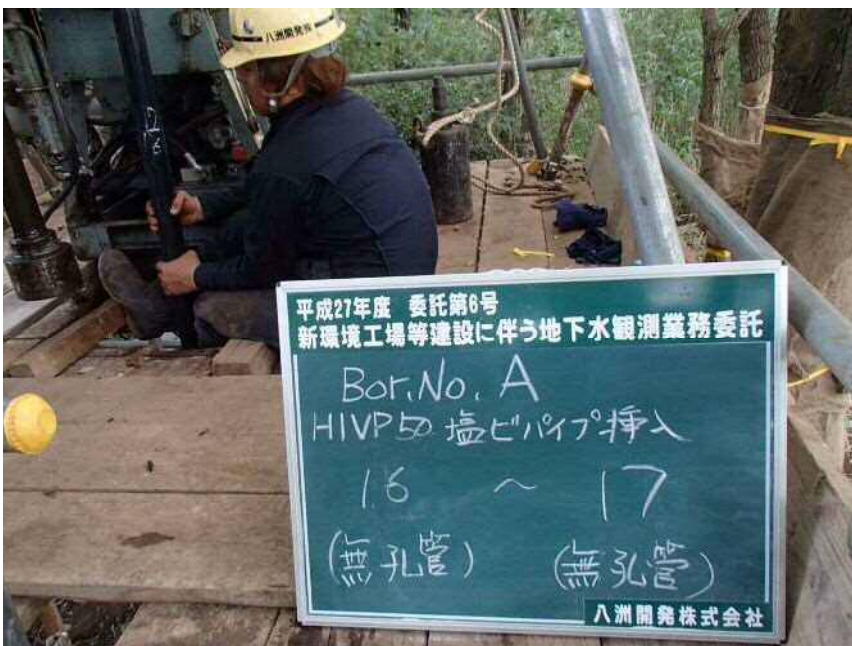 八洲開発㈱
平成27年度 委託第6号
新環境工場等建設に伴う地下水観測業務委託
Bor.No. A
HIVP50 塩ビパイプ挿入
16 ～ 17
(無孔管) (無孔管)
八洲開発株式会社